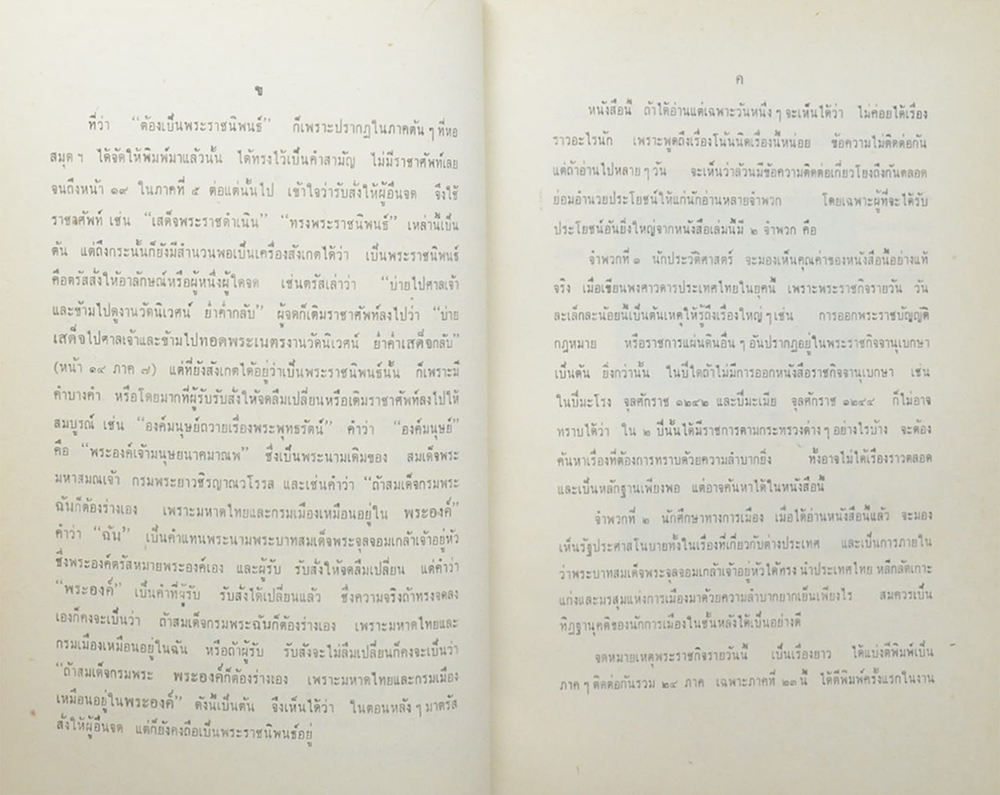 ข
ที่ว่า “ต้องเป็นพระราชนิพนธ์” ก็เพราะปรากฏในภาคต้น ๆ ที่หอ
สมุด ฯ ได้จัดให้พิมพ์มาแล้วนั้น ได้ทรงไว้เป็นคำสามัญ ไม่มีราชาศัพท์เลย
จนถึงหน้า ๑๙ ในภาคที่ ๕ ต่อแต่นั้นไป เข้าใจว่ารับสั่งให้ผู้อื่นจด จึงใช้
ราชาศัพท์ เช่น “เสด็จพระราชดำเนิน” “ทรงพระราชนิพนธ์” เหล่านี้เป็น
ต้น แต่ถึงกระนั้นก็ยังมีสำนวนพอเป็นเครื่องสังเกตได้ว่า เป็นพระราชนิพนธ์
คือตรัสสั่งให้อาลักษณ์หรือผู้หนึ่งผู้ใดจด เช่นตรัสเล่าว่า “บ่ายไปศาลเจ้า
และข้ามไปดูงานวัดนิเวศน์ ย่ำค่ำกลับ” ผู้จดก็เติมราชาศัพท์ลงไปว่า “บ่าย
เสด็จไปศาลเจ้าและข้ามไปทอดพระเนตรงานวัดนิเวศน์ ย่ำค่ำเสด็จกลับ”
(หน้า ๑๔ ภาค ๗) แต่ที่ยังสังเกตได้อยู่ว่าเป็นพระราชนิพนธ์นั้น ก็เพราะมี
คำบางคำ หรือโดยมากที่ผู้รับรับสั่งให้จดลืมเปลี่ยนหรือเติมราชาศัพท์ลงไปให้
สมบูรณ์ เช่น “องค์มนุษย์ถวายเรื่องพระพุทธรัตน์” คำว่า “องค์มนุษย์”
คือ “พระองค์เจ้ามนุษยนาคมาณพ” ซึ่งเป็นพระนามเดิมของ สมเด็จพระ
มหาสมณเจ้า กรมพระยาวชิรญาณวโรรส และเช่นคำว่า “ถ้าสมเด็จกรมพระ
ฉันก็ต้องร่างเอง เพราะมหาดไทยและกรมเมืองเหมือนอยู่ใน พระองค์”
คำว่า “ฉัน” เป็นคำแทนพระนามพระบาทสมเด็จพระจุลจอมเกล้าเจ้าอยู่หัว
ซึ่งพระองค์ตรัสหมายพระองค์เอง และผู้รับ รับสั่งให้จดลืมเปลี่ยน แต่คำว่า
“พระองค์” เป็นคำที่ผู้รับ รับสั่งได้เปลี่ยนแล้ว ซึ่งความจริงถ้าทรงจดลง
เองก็คงจะเป็นว่า ถ้าสมเด็จกรมพระฉันก็ต้องร่างเอง เพราะมหาดไทยและ
กรมเมืองเหมือนอยู่ในฉัน หรือถ้าผู้รับ รับสั่งจะไม่ลืมเปลี่ยนก็คงจะเป็นว่า
“ถ้าสมเด็จกรมพระ พระองค์ก็ต้องร่างเอง เพราะมหาดไทยและกรมเมือง
เหมือนอยู่ในพระองค์” ดังนี้เป็นต้น จึงเห็นได้ว่า ในตอนหลัง ๆ มาตรัส
สั่งให้ผู้อื่นจด แต่ก็ยังคงถือเป็นพระราชนิพนธ์อยู่
ค
หนังสือนี้ ถ้าได้อ่านแต่เฉพาะวันหนึ่ง ๆ จะเห็นได้ว่า ไม่ค่อยได้เรื่อง
ราวอะไรนัก เพราะพูดถึงเรื่องโน้นนิดเรื่องนี้หน่อย ข้อความไม่ติดต่อกัน
แต่ถ้าอ่านไปหลาย ๆ วัน จะเห็นว่าล้วนมีข้อความติดต่อเกี่ยวโยงถึงกันตลอด
ย่อมอำนวยประโยชน์ให้แก่นักอ่านหลายจำพวก โดยเฉพาะผู้ที่จะได้รับ
ประโยชน์อันยิ่งใหญ่จากหนังสือเล่มนี้มี ๒ จำพวก คือ
จำพวกที่ ๑ นักประวัติศาสตร์ จะมองเห็นคุณค่าของหนังสือนี้อย่างแท้
จริง เมื่อเขียนพงศาวดารประเทศไทยในยุคนี้ เพราะพระราชกิจรายวัน วัน
ละเล็กละน้อยนี้เป็นต้นเหตุให้รู้ถึงเรื่องใหญ่ ๆ เช่น การออกพระราชบัญญัติ
กฎหมาย หรือราชการแผ่นดินอื่น ๆ อันปรากฏอยู่ในพระราชกิจจานุเบกษา
เป็นต้น ยิ่งกว่านั้น ในปีใดถ้าไม่มีการออกหนังสือราชกิจจานุเบกษา เช่น
ในปีมะโรง จุลศักราช ๑๒๔๒ และปีมะเมีย จุลศักราช ๑๒๔๔ ก็ไม่อาจ
ทราบได้ว่า ใน ๒ ปีนั้นได้มีราชการตามกระทรวงต่าง ๆ อย่างไรบ้าง จะต้อง
ค้นหาเรื่องที่ต้องการทราบด้วยความลำบากยิ่ง ทั้งอาจไม่ได้เรื่องราวตลอด
และเป็นหลักฐานเพียงพอ แต่อาจค้นหาได้ในหนังสือนี้
จำพวกที่ ๒ นักศึกษาทางการเมือง เมื่อได้อ่านหนังสือนี้แล้ว จะมอง
เห็นรัฐประศาสโนบายทั้งในเรื่องที่เกี่ยวกับต่างประเทศ และเป็นการภายใน
ว่าพระบาทสมเด็จพระจุลจอมเกล้าเจ้าอยู่หัวได้ทรง นำประเทศไทย หลีกลัดเกาะ
แก่งและมรสุมแห่งการเมืองมาด้วยความลำบากยากเย็นเพียงไร สมควรเป็น
ทิฏฐานุคติของนักการเมืองในชั้นหลังได้เป็นอย่างดี
จดหมายเหตุพระราชกิจรายวันนี้ เป็นเรื่องยาว ได้แบ่งตีพิมพ์เป็น
ภาค ๆ ติดต่อกันรวม ๒๔ ภาค เฉพาะภาคที่ ๒๓ นี้ ได้ตีพิมพ์ครั้งแรกในงาน